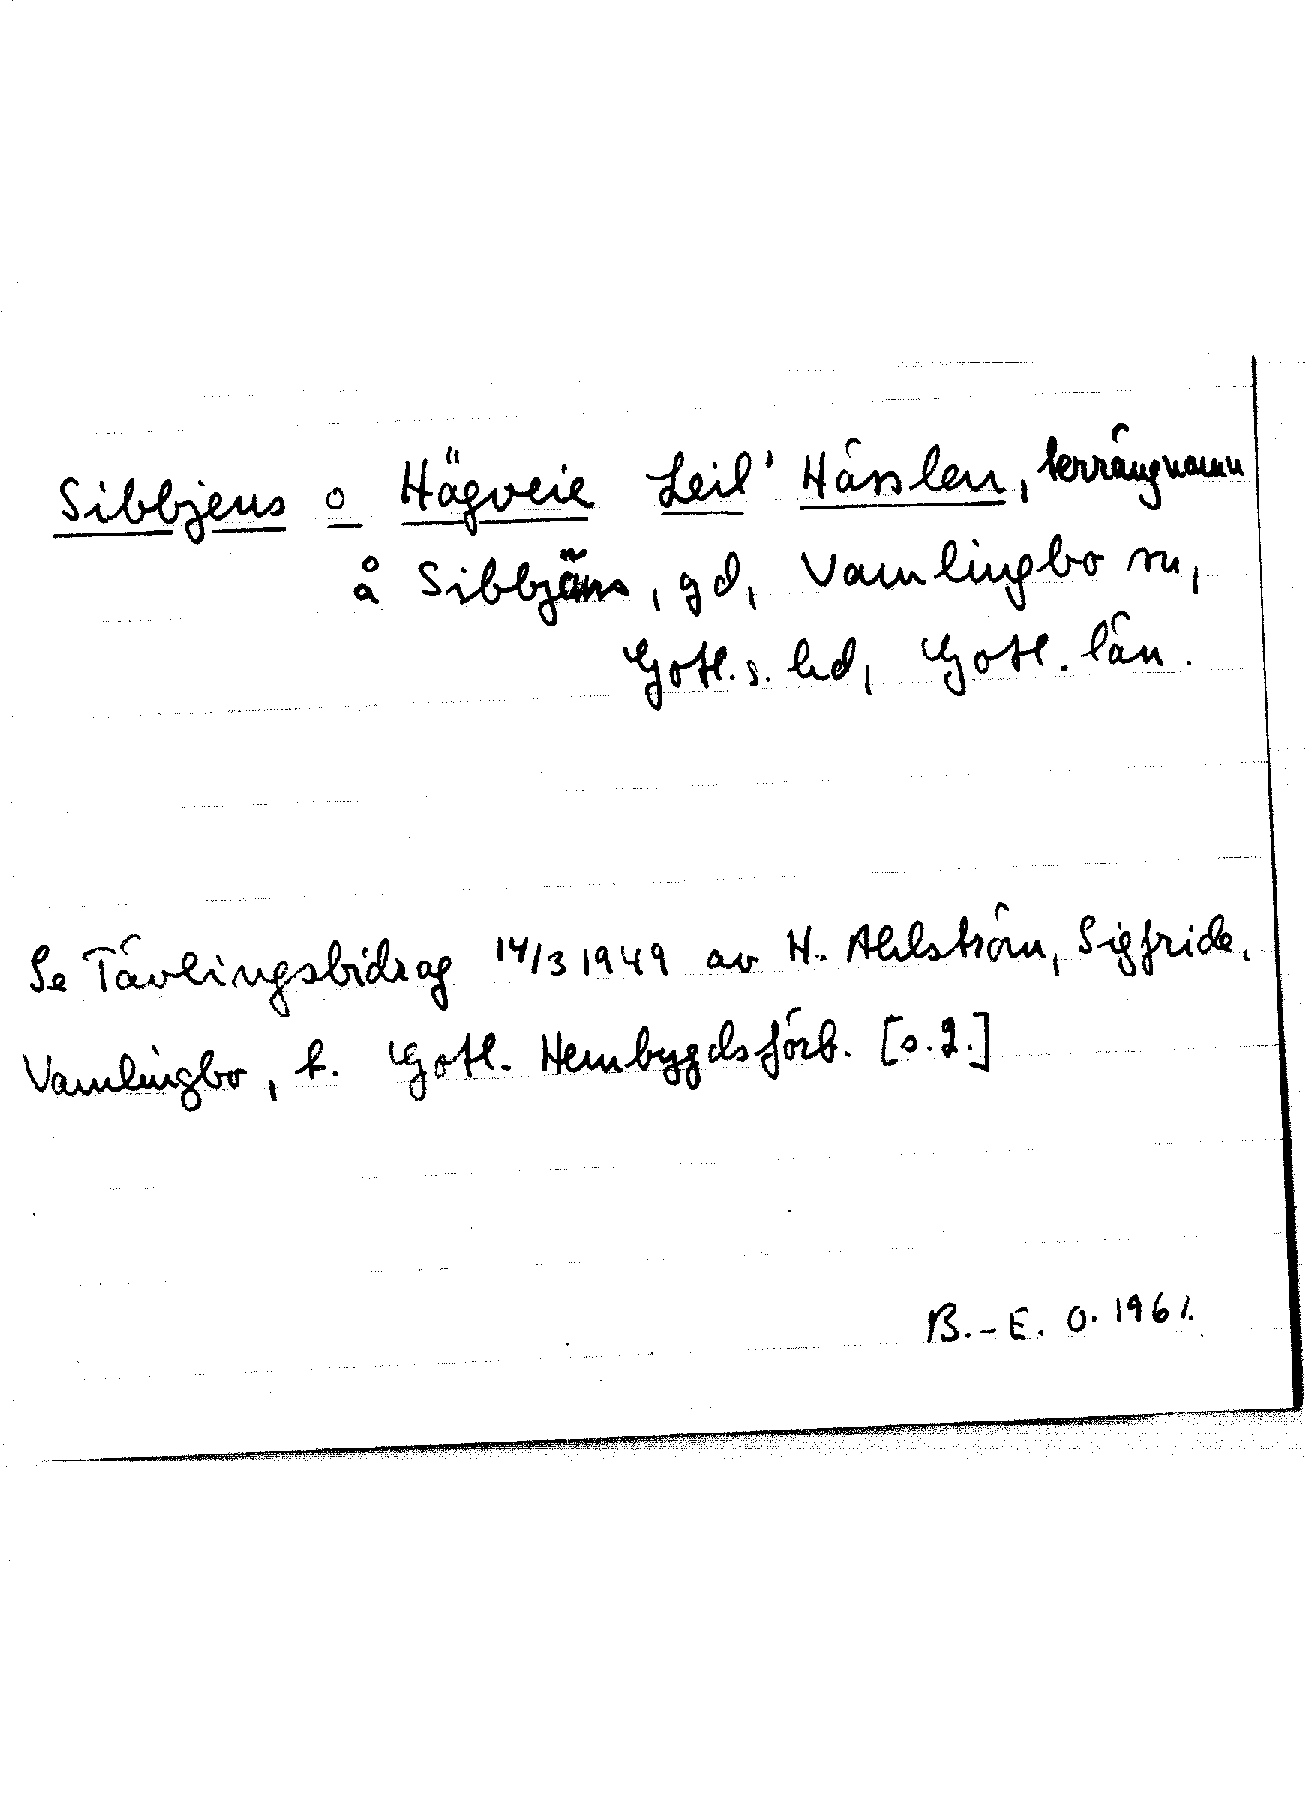 Sibbjens o Hägveie Leil' Hässlen, terrängnamn
å Sibbjäns, gd, Vamlingbo sn,
Gotl.s. hd, Gotl. län.
Se Tävlingsbidrag 14/3 1949 av H. Ahlström, Sigfride,
Vamlingbo, t. Gotl. Hembygdsförb. [s.2.]
B.-E. O. 1961.